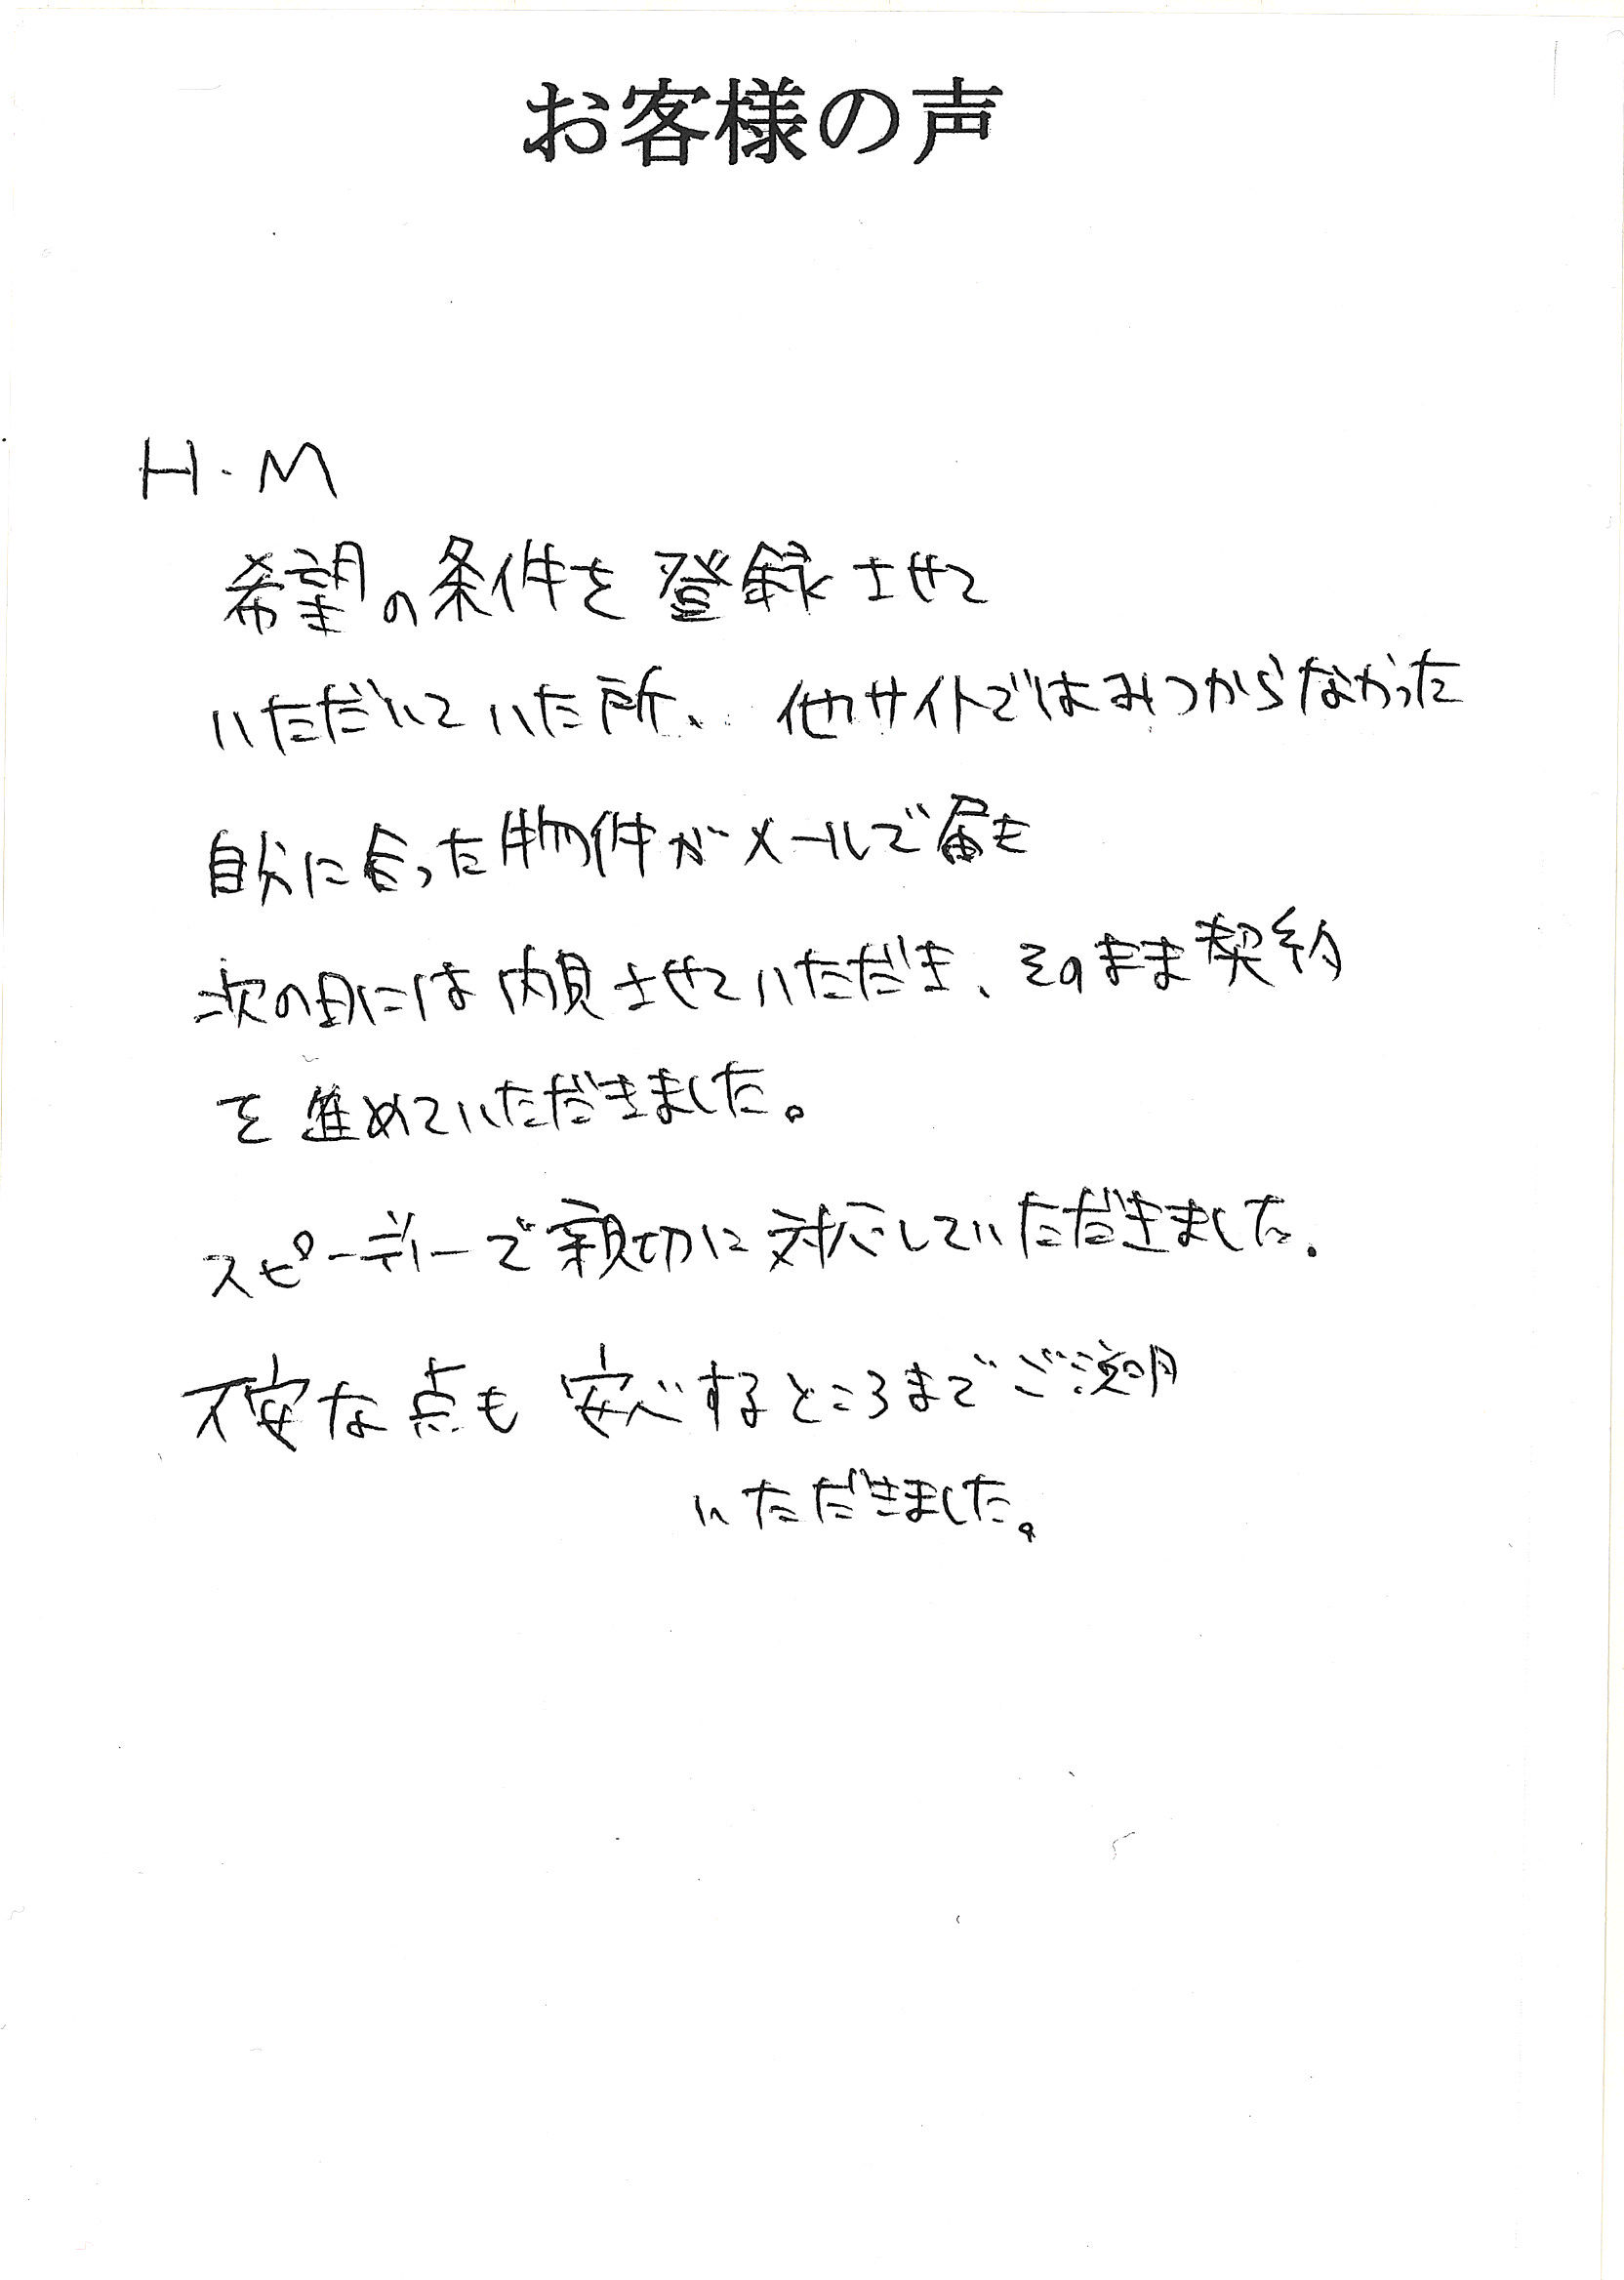 お客様の声
H.M
希望の条件を登録させて
いただいていた所、他サイトではみつからなかった
自分に合った物件がメールで届き
次の日には内見させていただき、そのまま契約
を進めていただきました。
スピーディーで親切に対応していただきました。
不安な点も安心するところまでご説明
いただきました。